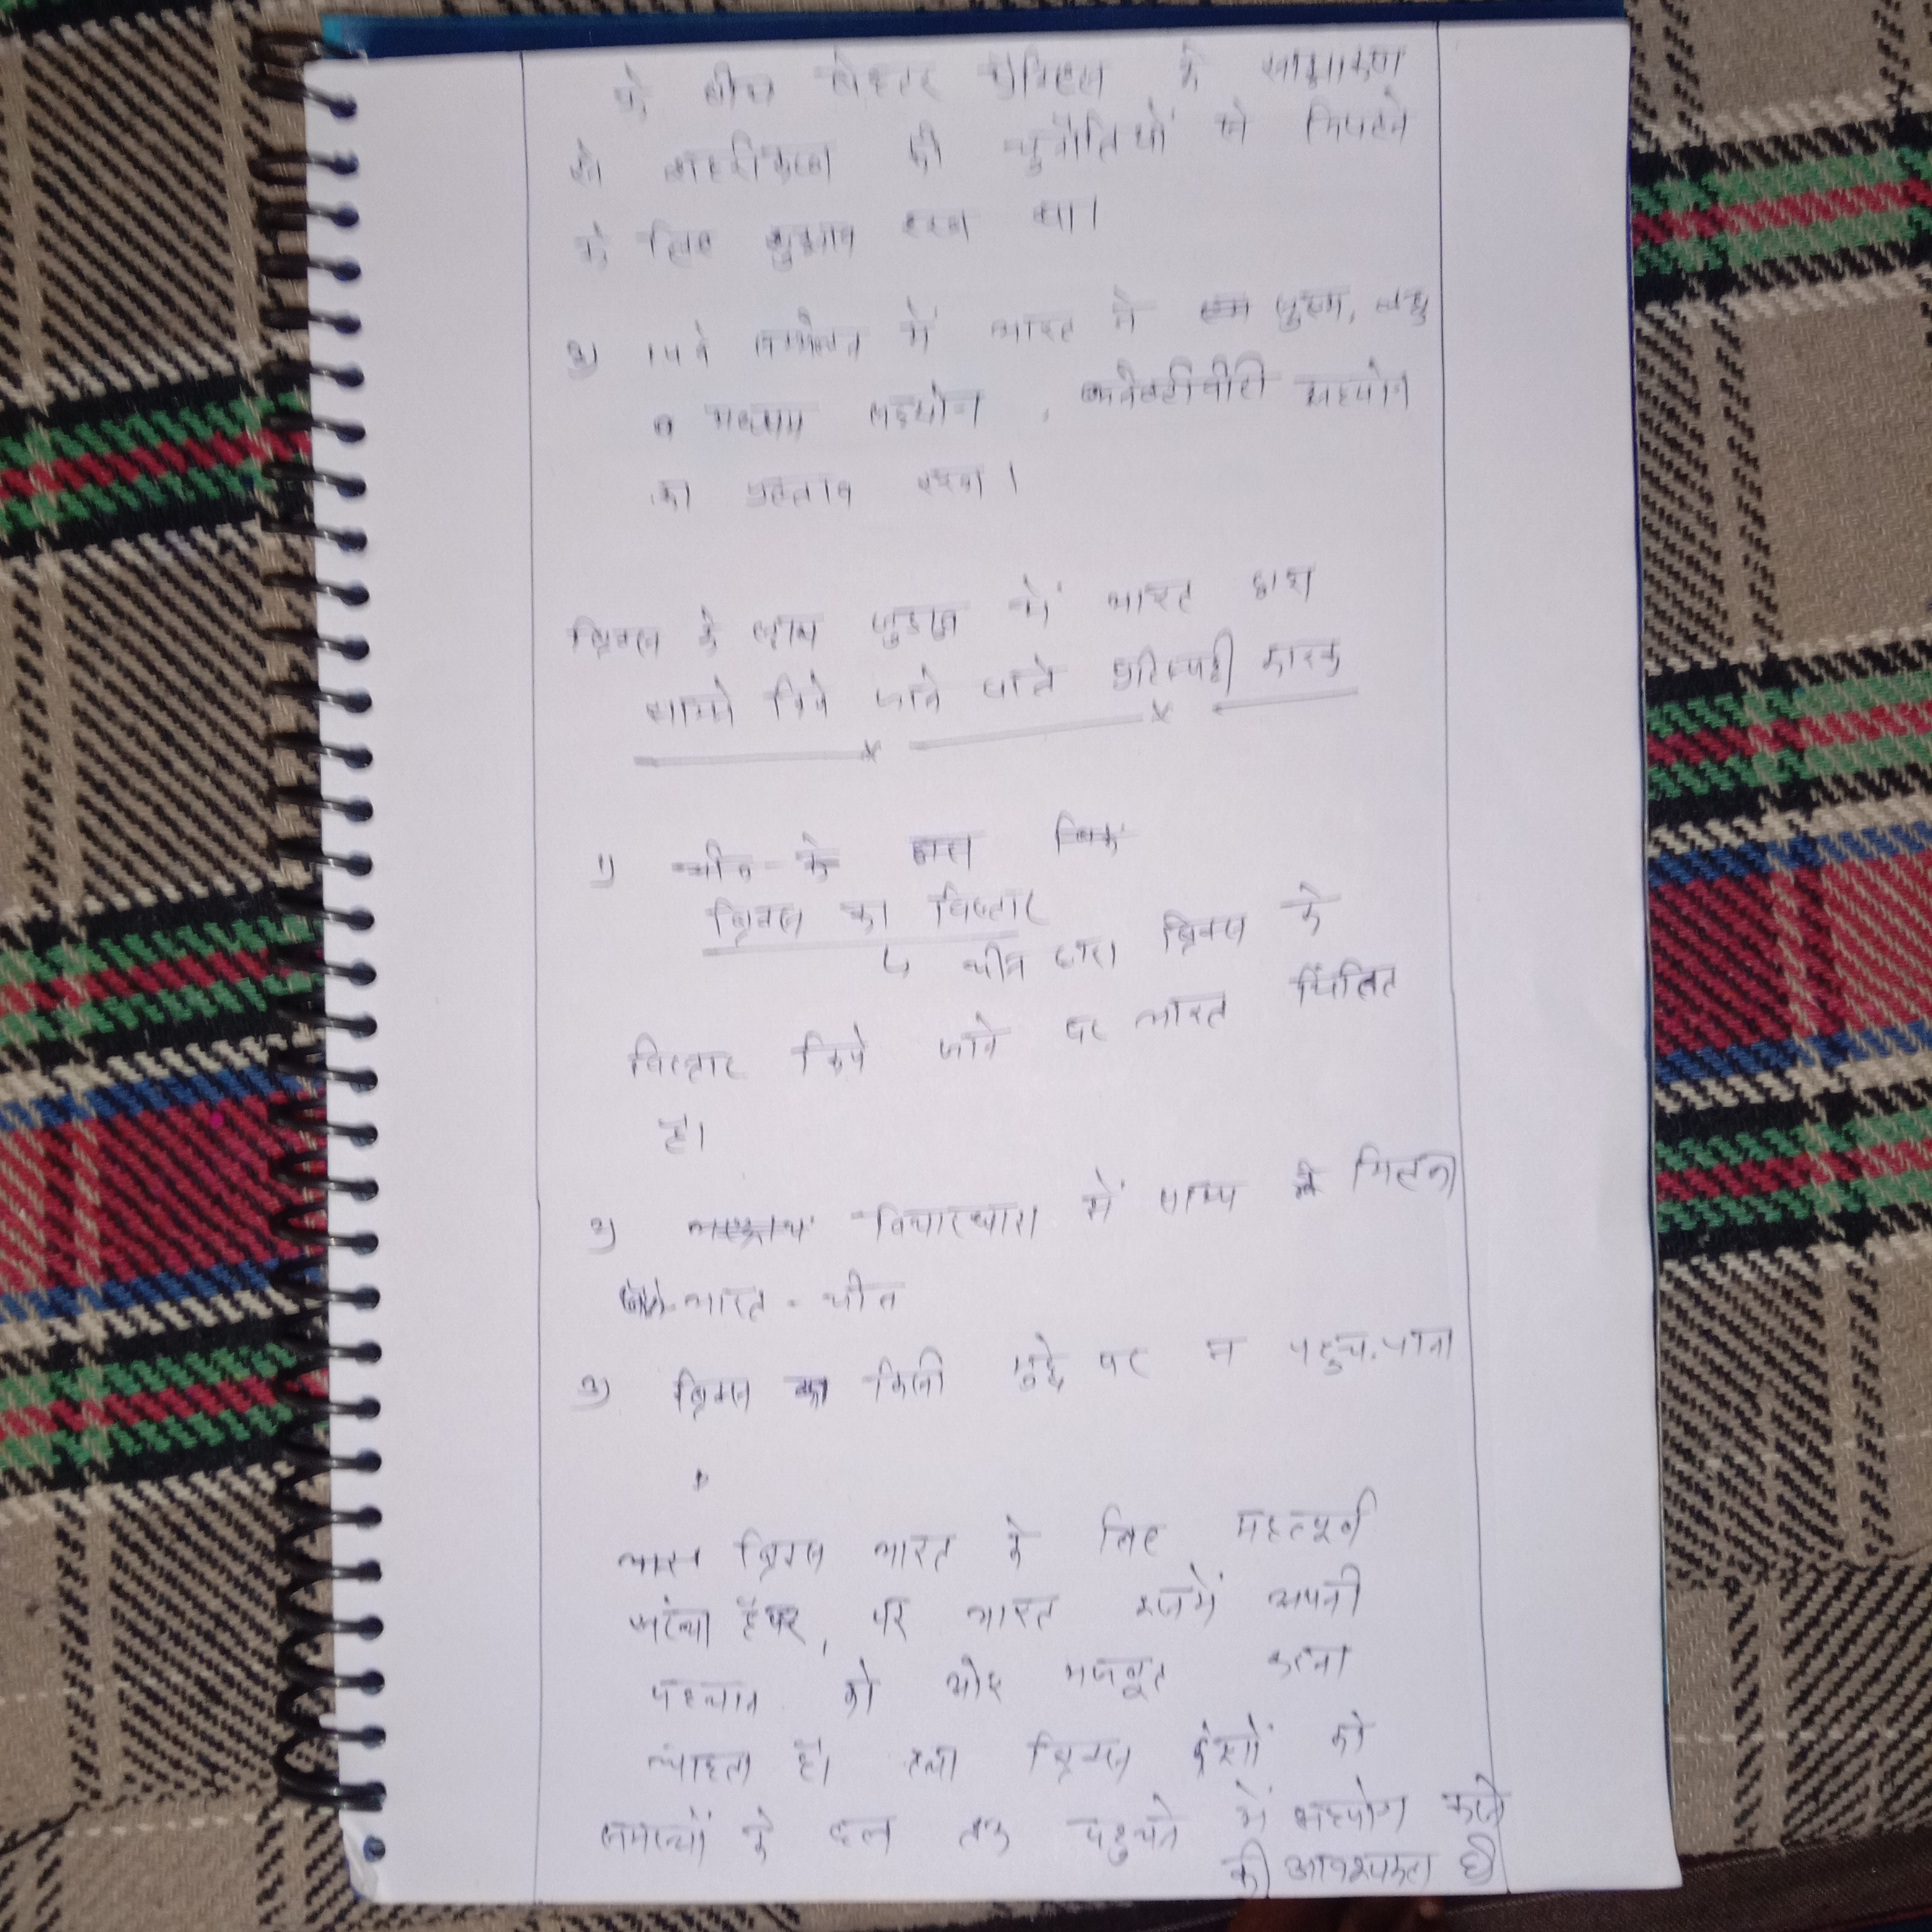 के बीच बेहतर प्रैक्टिस के साझाकरण
से शहरीकरण की चुनौतियों से निपटने
के लिए सुझाव रखा था।
3) 14वें सम्मेलन में भारत ने सुरक्षा, लघु
व मध्यम उद्योग, कनेक्टीवीटी सहयोग
का प्रस्ताव रखा।
ब्रिक्स के साथ जुड़ाव में भारत द्वारा
सामने किये जाने वाले प्रतिस्पर्द्धी कारक
1) चीन के द्वारा
ब्रिक्स का विस्तार
↳ चीन द्वारा ब्रिक्स के
विस्तार किये जाने पर भारत चिंतित
है।
2) विचारधारा में साम्य न मिलना
भारत - चीन
3) ब्रिक्स का किसी मुद्दे पर न पहुच पाना
ब्रिक्स भारत के लिए महत्पूर्ण
संस्था है, पर भारत इसमें अपनी
पहचान को और मजबूत करना
चाहता है। तथा ब्रिक्स देशों को
समस्यों के हल तक पहुचने में सहयोग करने
की आवश्यकता है।